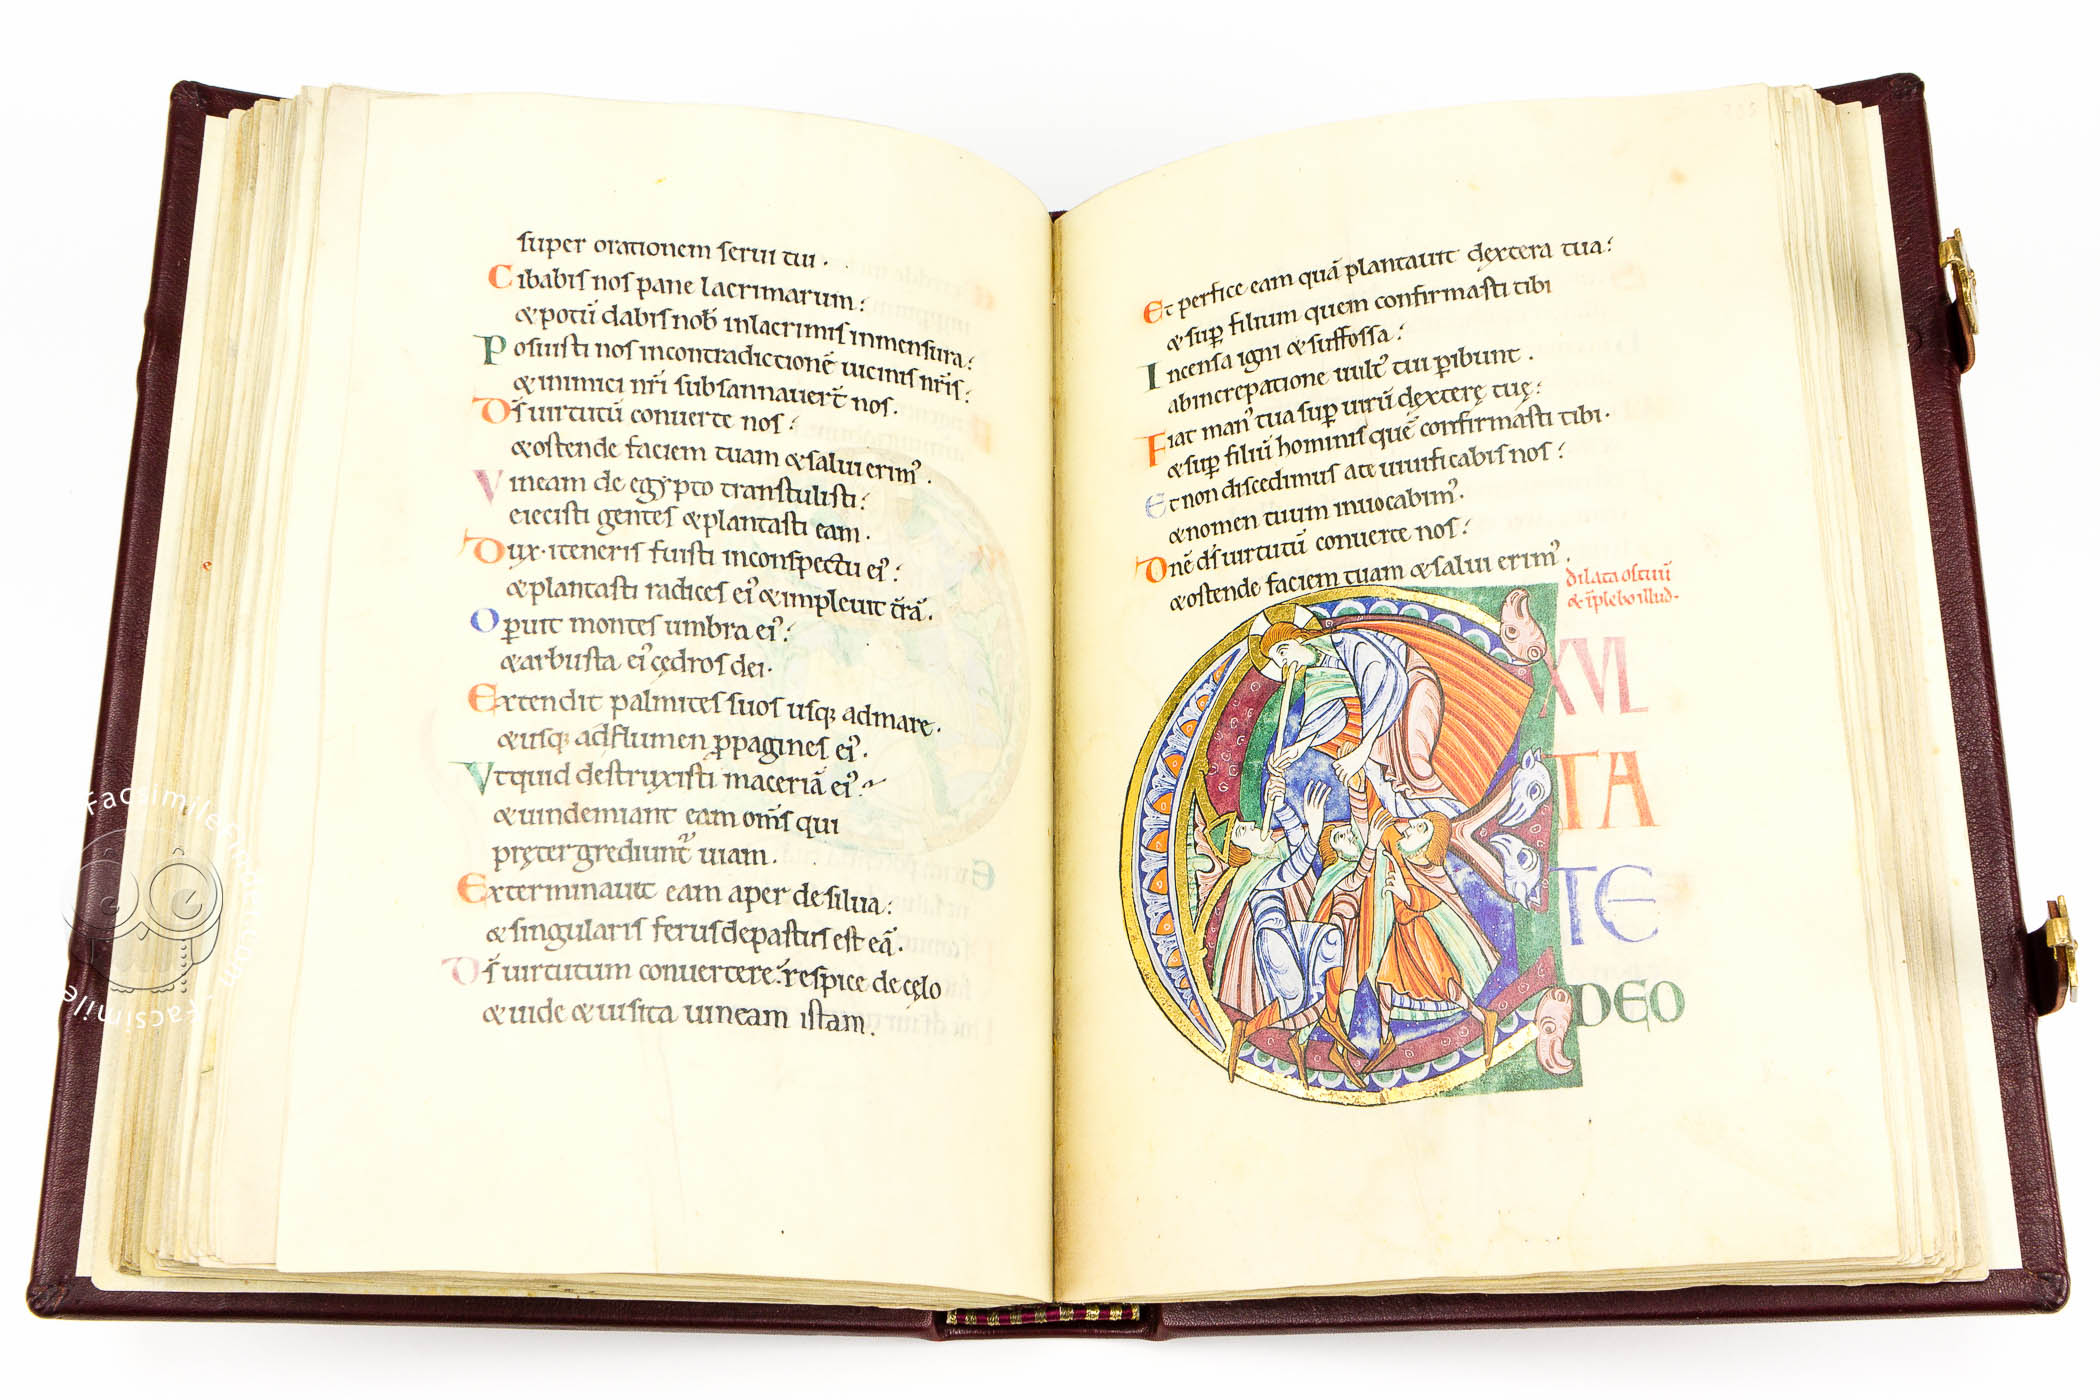 super orationem serui tui.
Cibabis nos pane lacrimarum:
& potū dabis nob̄ inlacrimis inmensura:
Posuisti nos incontradictionē uicinis nr̄is:
& inimici nr̄i subsannauer̄t nos.
D̄s uirtutū conuerte nos:
& ostende faciem tuam & salui erim᾿.
Vineam de egypto transtulisti:
eiecisti gentes & plantasti eam.
Dux·iteneris fuisti inconspectu ei᾿:
& plantasti radices ei᾿ & impleuit t̄rā.
Operuit montes umbra ei᾿:
& arbusta ei᾿ cędros dei.
Extendit palmites suos usq; admare.
& usq; ad flumen ꝓpagines ei᾿.
Vtquid destruxisti maceriā ei᾿:
& uindemiant eam om̄s qui
pręter grediunt᾿ uiam.
Exterminauit eam aper de silua:
& singularis ferus depastus est eā.
D̄s uirtutum conuertere: respice de cęlo
& uide & uisita uineam istam.
Et perfice eam quā plantauit dextera tua:
& suꝑ filium quem confirmasti tibi
Incensa igni & suffossa:
abincrepatione uult᾿ tui ꝑibunt.
Fiat man᾿ tua suꝑ uirū dexterę tuę:
& suꝑ filiū hominis quē confirmasti tibi.
Et non discedimus ate uiuificabis nos:
& nomen tuum inuocabim᾿.
Dn̄e d̄s uirtutū conuerte nos:
& ostende faciem tuam & salui erim᾿.
dilata os tuū
& īplebo illud.
EXUL
TA
TE
DEO
Facsimilefinder.com - Facsimile